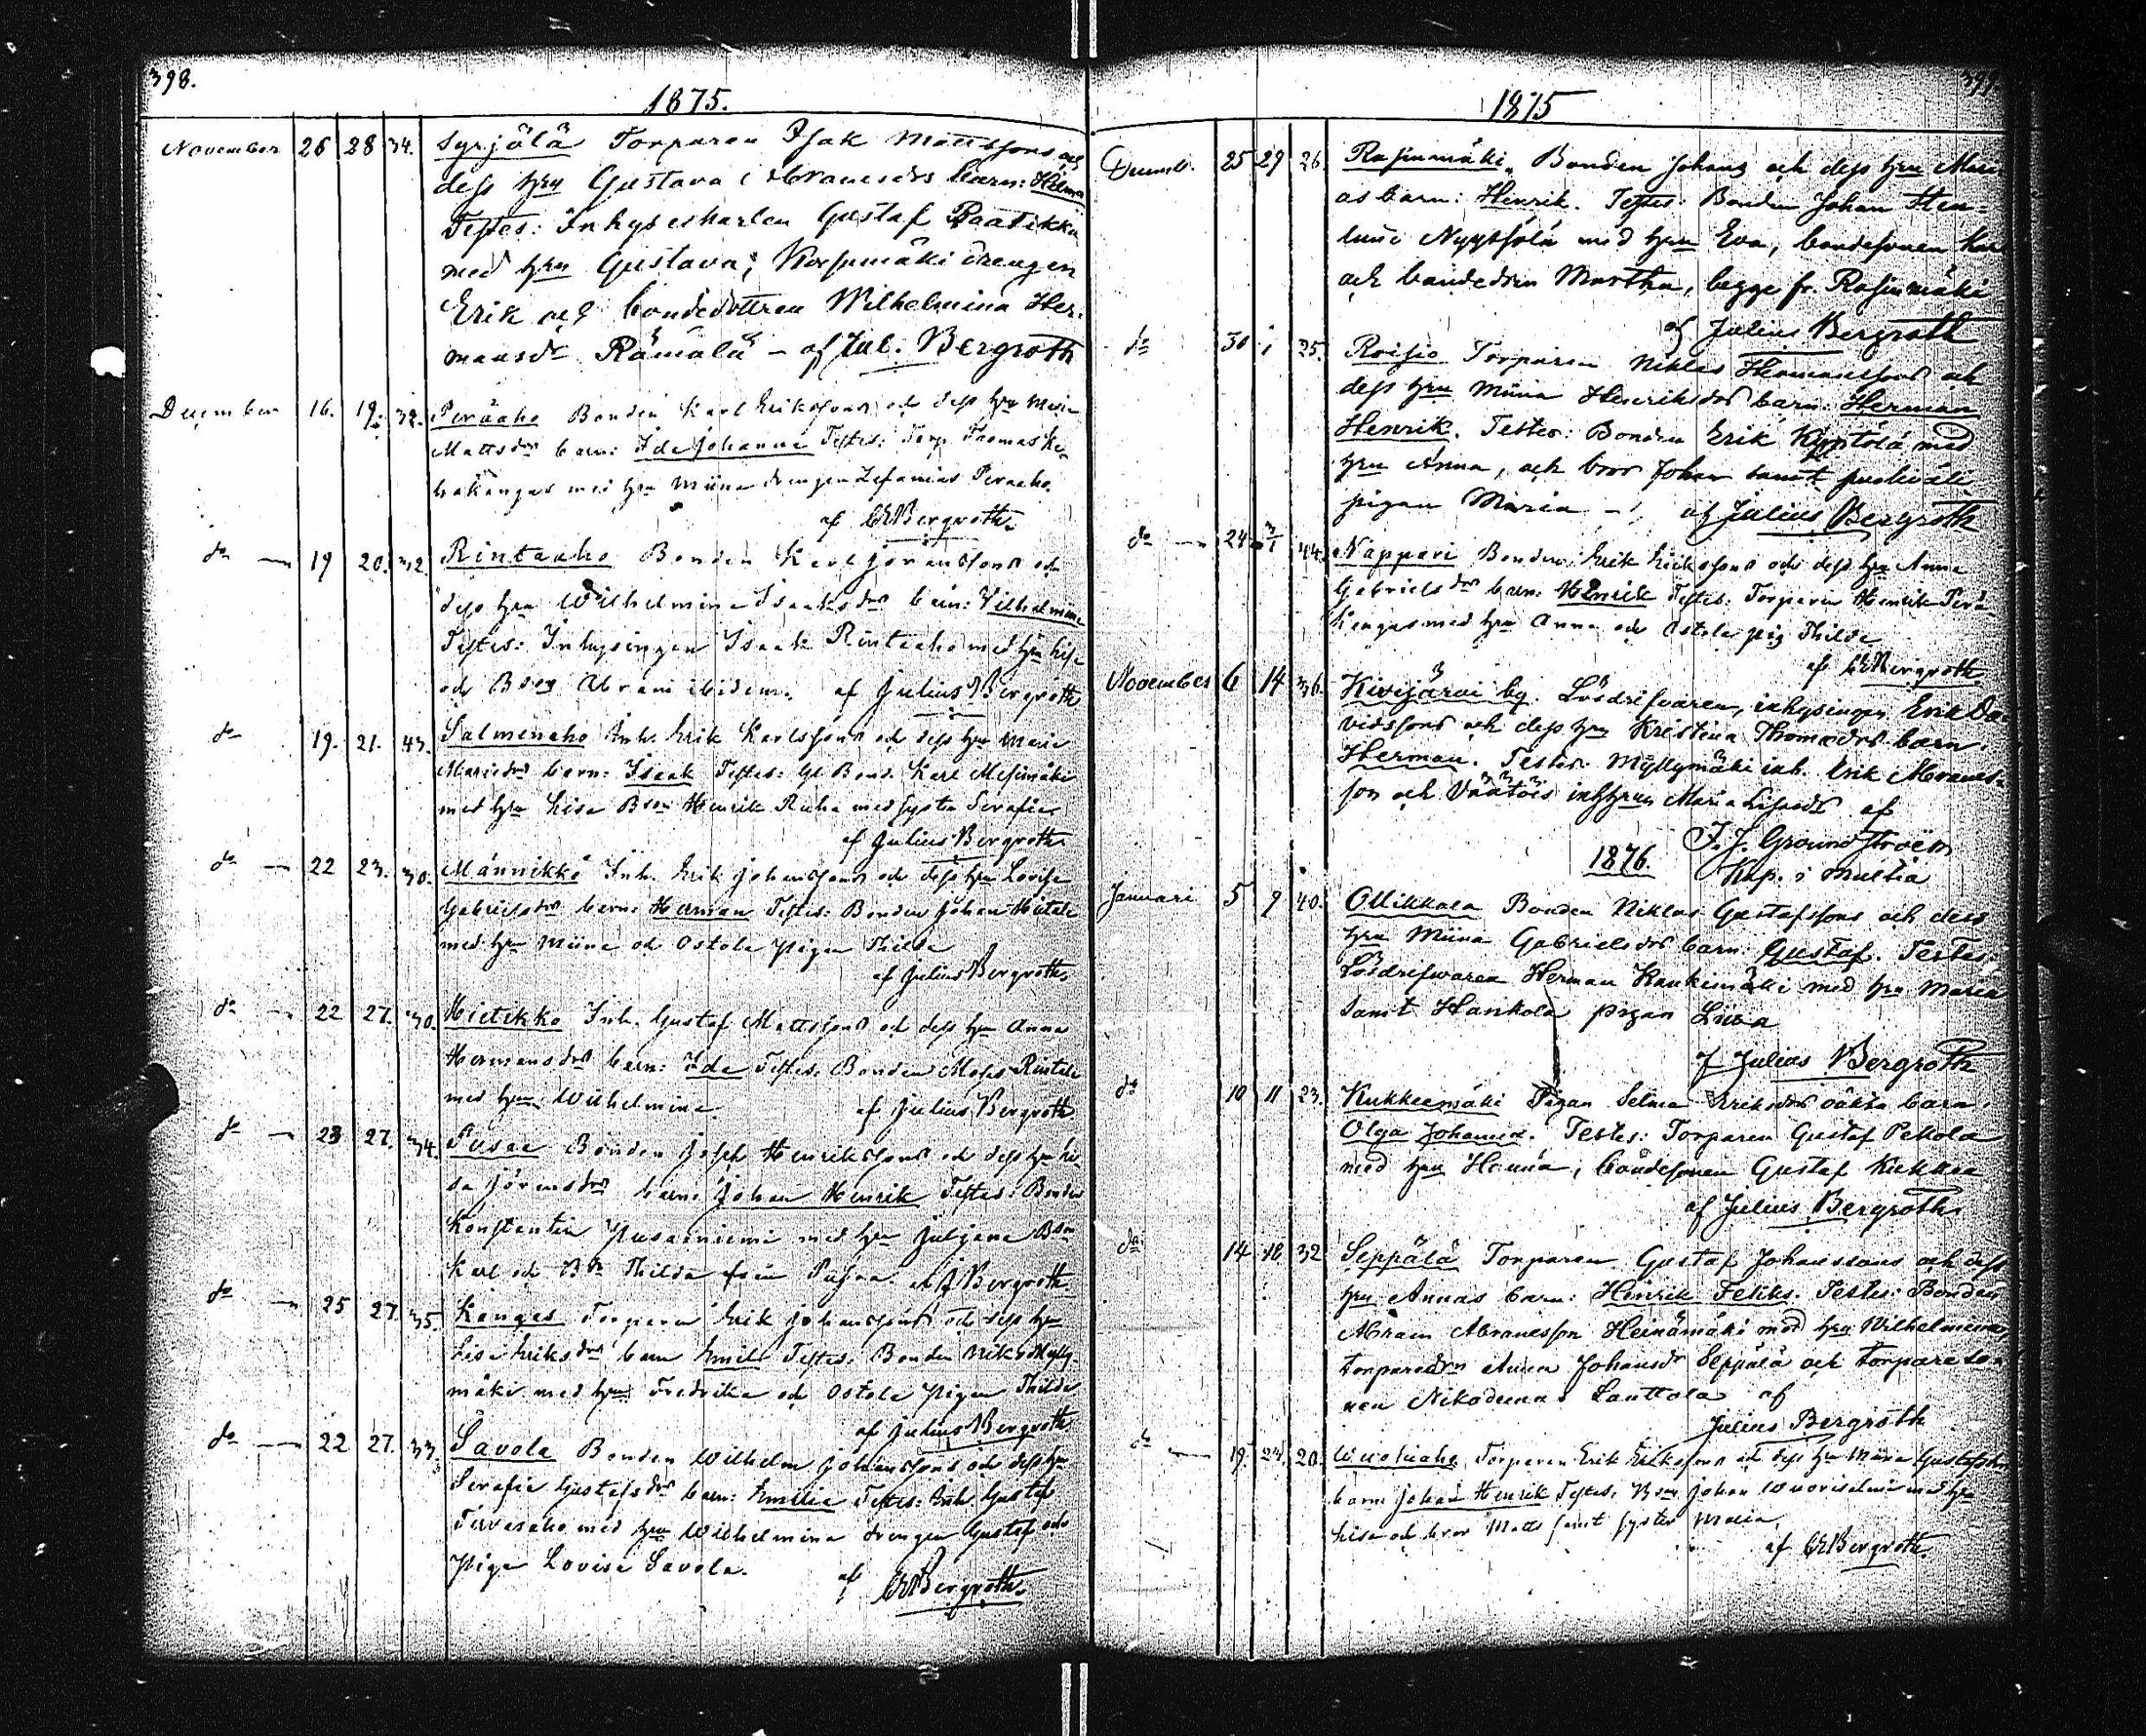 398.
1875.
November 26 28 34. Syrjälä Torparen Isak Mattssons och
dess hru Gustava Abramsdrs barn: Helena
Testes: Inhyseskarlen Gustaf Paatikka
med hru Gustava; Korpimäki drängen
Erik och bondedottren Wilhelmina Her-
mansdr Rämälä – af Jul. Bergroth
December 16. 19. 32. Peräaho Bonden Karl Erikssons och dess hru Maria
Mattsdrs barn: Ida Johanna Testes: Torp. Thomas
kangas med hru Miina drengen Zefanias Peraaho.
af CEBergroth.
do 19 20. 32. Rintaaho Bonden Karl Jöranssons och
dess hru Wilhelmina Isaksdrs barn: Vilhelmina
Testes: Inhysingen Isaak Rintaaho med hru Lisa
och Bson Abram ibidem. af Julius Bergroth
do 19. 21. 43. Salmenaho Inh. Erik Karlssons och dess hru Maria
Mariedrs barn: Isaak Testes: Gl Bond. Karl Mesimäki
med hru Lisa Bson Henrik Ruha med syster Serafia
af Julius Bergroth
do 22 23. 30. Männikkö Inh. Erik Johanssons och dess hru Lovisa
Gabrielsdrs barn: Herman Testes: Bonden Johan Hietala
med hru Miina och Ostola pigan Thilda
af Julius Bergroth.
do 22 27. 30. Hietikko Inh. Gustaf Mattssons och dess hru Anna
Hermansdrs barn: Ida Testes: Bonden Moses Rintala
med hru Wilhelmina af Julius Bergroth
do 23 27. 34. Pusaa Bonden Joseph Henrikssons och dess hru Li-
sa Jöransdrs barn: Johan Henrik Testes: Bonden
Konstantin Pusaanniemi med hru Juljana Bson
Karl och Bdr Thilda från Pusaa. af JBergroth.
do 25 27. 35. Kangas Torparen Erik Johanssons och dess hru
Lisa Eriksdrs barn Emil Testes: Bonden Niklas Mylly-
mäki med hru Fredrika och Ostola pigan Thilda
af Julius Bergroth
do 22 27. 33. Savola Bonden Wilhelm Johanssons och dess hru
Serafia Gustafsdrs barn: Emilia Testes: Inh. Gustaf
Tervasaho med hru Wilhelmina drengen Gustaf och
Piga Lovisa Savola.
af CEBergroth.
399.
1875
Decemb. 25 29 26. Rasinmäki Bonden Johans och dess hru Mari-
as barn: Henrik. Testes: Bonden Johan
Nyyssölä med hru Eva, bondesonen Karl
och bondedrn Martha, begge fr. Rasinmäki
af Julius Bergroth
do 30 1 25. Roisio Torparen Niklas Hermanssons och
dess hru Miina Henriksdrs barn: Herman
Henrik. Testes: Bonden Erik Kyntölä med
hru Anna, och bror Johan samt
pigan Maria – af Julius Bergroth
do 24 3/1 44. Nappari Bonden Erik Erikssons och dess hru Anna
Gabrielsdrs barn: Henrik Testes: Torparen Henrik Perä-
kangas med hru Anna och Ostola pig Thilda
af CEBergroth.
November 6 14 36. Kivijärvi by. Lösdrifvaren, inhysingen Erik Da-
vidssons och dess hru Kristina Thomasdrs barn:
Herman. Testes: Myllymäki inh. Erik Abrams-
son och Väätäis inhhrun Maria Lisasdr af
J. J. Grounstroëm
Kap. i Multia
1876.
Januari 5 9 40. Ollikkala Bonden Niklas Gustafssons och dess
hru Miina Gabrielsdrs barn: Gustaf. Testes:
Lösdrefwaren Herman Kaukimäki med hru Maria
samt Hankola pigan Liisa
af Julius Bergroth
do 10 11 23. Kukkeemäki Pigan Selma Eriksdrs oäkta barn:
Olga Johanna. Testes: Torparen Gustaf Pekkola
med hru Hanna, bondesonen Gustaf Kukkea
af Julius Bergroth.
do 14 18 32 Seppälä Torparen Gustaf Johanssons och dess
hru Annas barn: Henrik Feliks. Testes: Bonden
Abram Abramsson Heinämäki med hru Wilhelmina,
torparedrn Anna Johansdr Seppälä och torpareso-
nen Nikodemus Lauttola af
Julius Bergroth
do 19. 24. 20. Torparen Erik Erikssons och dess hru Miina Gustafsdrs
barn: Johan Henrik Testes: Bson Johan Wuorisalmi med hru
Lisa och bror Matts samt syster Maria,
af CEBergroth.